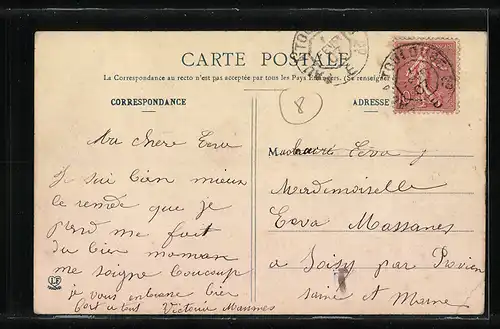 CARTE POSTALE
La Correspondance au recto n'est pas acceptée par tous les Pays Étrangers. (Se renseigner
CORRESPONDANCE
ADRESSE
8
Ma chere Erva
Je sui bien mieux
le remde que je
prend me fait
du bien maman
me soigne boucoup
je vous enbrasse bien
fort a tous Victoria
Mademoiselle
Erva Massanes
a Soisy par Provien
saine et Marne
LF